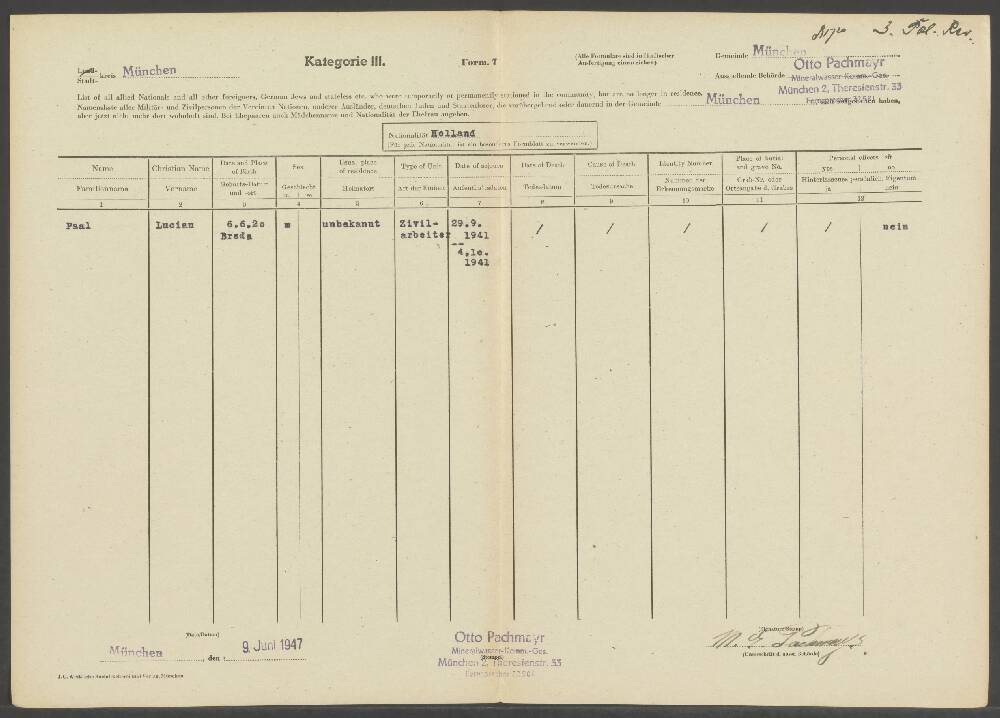 3. Pol. Rev.
Land-
Stadt- kreis München
Kategorie III.
Form. 7
(Alle Formulare sind in 4facher
Ausfertigung einzureichen)
Gemeinde München
Ausstellende Behörde
Otto Pachmayr
Mineralwasser-Komm.-Ges.
München 2, Theresienstr. 33
List of all allied Nationals and all other foreigners, German Jews and stateless etc. who were temporarily or permanently stationed in the community, but are no longer in residence.
Namensliste aller Militär- und Zivilpersonen der Vereinten Nationen, anderer Ausländer, deutschen Juden und Staatenloser, die vorübergehend oder dauernd in der Gemeinde München aufgehalten haben,
aber jetzt nicht mehr dort wohnhaft sind. Bei Ehepaaren auch Mädchenname und Nationalität der Ehefrau angeben.
Nationalität Holland
(Für jede Nationalität ist ein besonderes Formblatt zu verwenden.)
Name
Familienname
1
Christian Name
Vorname
2
Date and Place
of Birth
Geburts-Datum
und -ort
3
Sex
Geschlecht
m. | w.
4
Usual place
of residence
Heimatort
5
Type of Unit
Art der Einheit
6
Date of sojourn
Aufenthaltsdaten
7
Date of Death
Todesdatum
8
Cause of Death
Todesursache
9
Identity Number
Nummer der
Erkennungsmarke
10
Place of burial
and grave No.
Grab-Nr. oder
Ortsangabe d. Grabes
11
Personal effects left
yes | no
Hinterlassenes persönlich. Eigentum
ja nein
12
Paal
Lucien
6.6.20
Breda
m
unbekannt
Zivil-
arbeiter
29.9.
1941
--
4.10.
1941
/ / / / / nein
(Date/Datum)
München, den 9. Juni 1947
Otto Pachmayr
Mineralwasser-Komm.-Ges.
(Stempel)
München 2, Theresienstr. 33
(Signature/Stamp)
(Unterschrift d. ausst. Behörde)